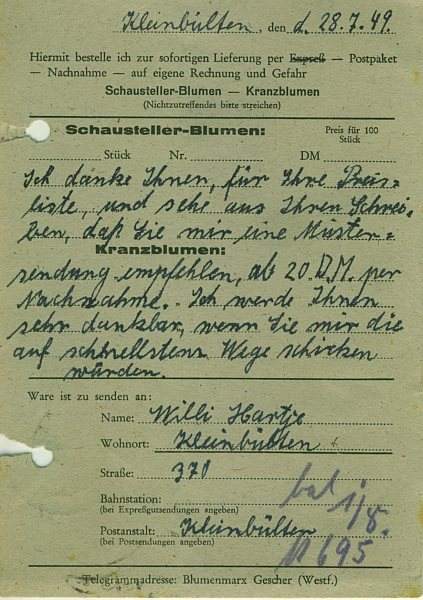 Kleinbülten, den d. 28.7.49.
Hiermit bestelle ich zur sofortigen Lieferung per Expreß — Postpaket
— Nachnahme — auf eigene Rechnung und Gefahr
Schausteller-Blumen — Kranzblumen
(Nichtzutreffendes bitte streichen)
Schausteller-Blumen: Preis für 100
Stück
Stück Nr. DM
Ich danke Ihnen, für Ihre Preis=
liste, und sehe aus Ihren Schrei=
ben, daß Sie mir eine Muster=
Kranzblumen:
sendung empfehlen, ab 20. D.M. per
Nachnahme. Ich werde Ihnen
sehr dankbar, wenn Sie mir die
auf schnellstens Wege schicken
würden.
Ware ist zu senden an:
Name: Willi Hartje
Wohnort: Kleinbülten
Straße: 370
Bahnstation:
(bei Expreßgutsendungen angeben)
1/8.
Postanstalt: Kleinbülten
(bei Postsendungen angeben)
695
Telegrammadresse: Blumenmarx Gescher (Westf.)